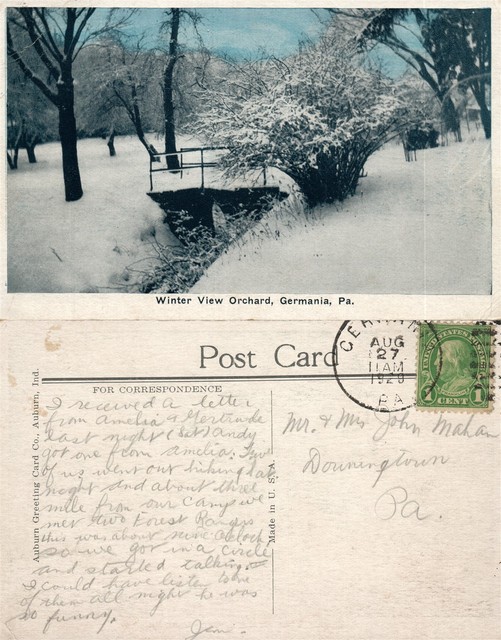 Winter View Orchard, Germania, Pa.
Post Card
AUG
27
11 AM
PA
UNITED STATES POSTAGE
1 CENT 1
FOR CORRESPONDENCE
Auburn Greeting Card Co., Auburn, Ind.
Made in U. S. A.
I received a letter
from Amelia & Gertrude
last night (Sat) Andy
got one from Amelia.
of us went out hiking last
night and about three
mile from our camp we
met two Forest Rangers
this was about nine o'clock
so we got in a circle
and started talking.
I could have listen to one
of them all night he was
so funny.
Jim.
Mr. & Mrs John Mahan
Downingtown
Pa.